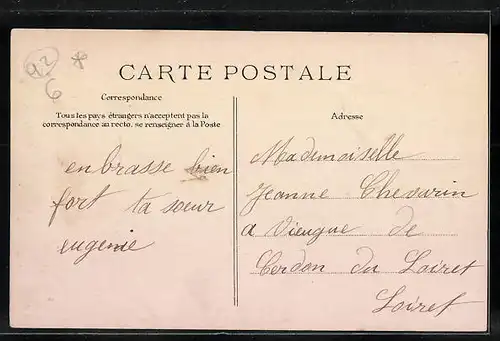 92 *
6
CARTE POSTALE
Correspondance
Tous les pays étrangers n'acceptent pas la
correspondance au recto, se renseigner à la Poste
enbrasse bien
fort ta sœur
eugenie
Adresse
Mademoiselle
Jeanne Chevarin
a Viengue de
Cerdon du Loiret
Loiret